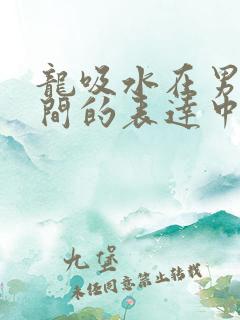 龍吸水在男
間的表達中
九堡
未經同意禁止轉載